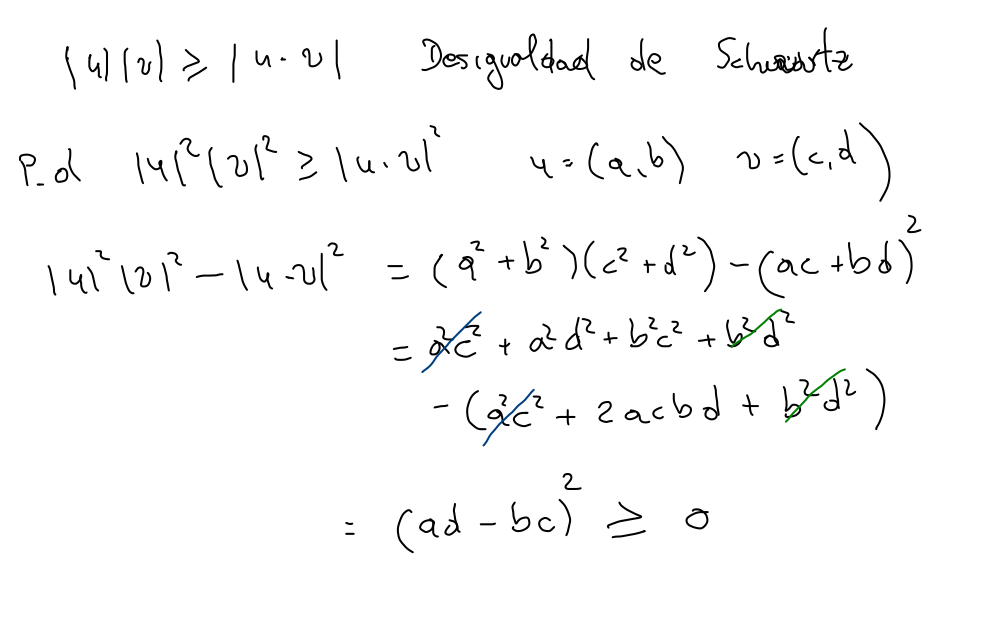 |u||v| ≥ |u·v| Desigualdad de Schwartz
P.d |u|²|v|² ≥ |u·v|² u=(a,b) v=(c,d)
|u|²|v|² - |u·v|² = (a²+b²)(c²+d²) - (ac+bd)²
= a²c² + a²d² + b²c² + b²d²
- (a²c² + 2acbd + b²d²)
= (ad - bc)² ≥ 0